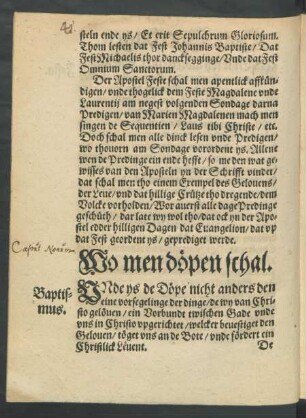 steln ende ys / Et erit Sepulchrum Gloriosum.
Thom lesten dat Fest Johannis Baptiste / Dat
Fest Michaelis thor dancksegginge / Vnde dat Fest
Omnium Sanctorum.
Der Apostel Feste schal men apentlick affkün-
digen / vnde thogelick dem Feste Magdalene vnde
Laurentij am negest volgenden Sondage darna
Predigen / van Marien Magdalenen mach men
singen de Sequentien / Laus tibi Christe / etc.
Doch schal men alle dinck lesen vnde Predigen /
wo thouorn am Sondage vorordent ys / Allene
wen de Predinge ein ende hefft / so me den wat ge-
wisses van den Aposteln yn der Schrifft vindet /
dat schal men tho einem Exempel des Gelouens /
der Leue / vnd dat hillige Crütze tho dregende / dem
Volcke vorholden / Wor auerst alle dage Predinge
geschüth / dar late wy wol tho / dat ock yn der Apo-
stel edder hilligen Dagen dat Euangelion / dat vp
dat Fest geordent ys / geprediget werde.
Wo men döpen schal.
Baptis-
mus.
VNde ys de Döpe nicht anders den
eine vorsegelinge der dinge / de wy van Chri-
sto gelöuen / ein Vorbundt twischen Gade vnde
vns in Christo vpgerichtet / welcker beuestiget den
Gelouen / töget vns an de Bote / vnde fördert ein
Christlick Leuent.
De